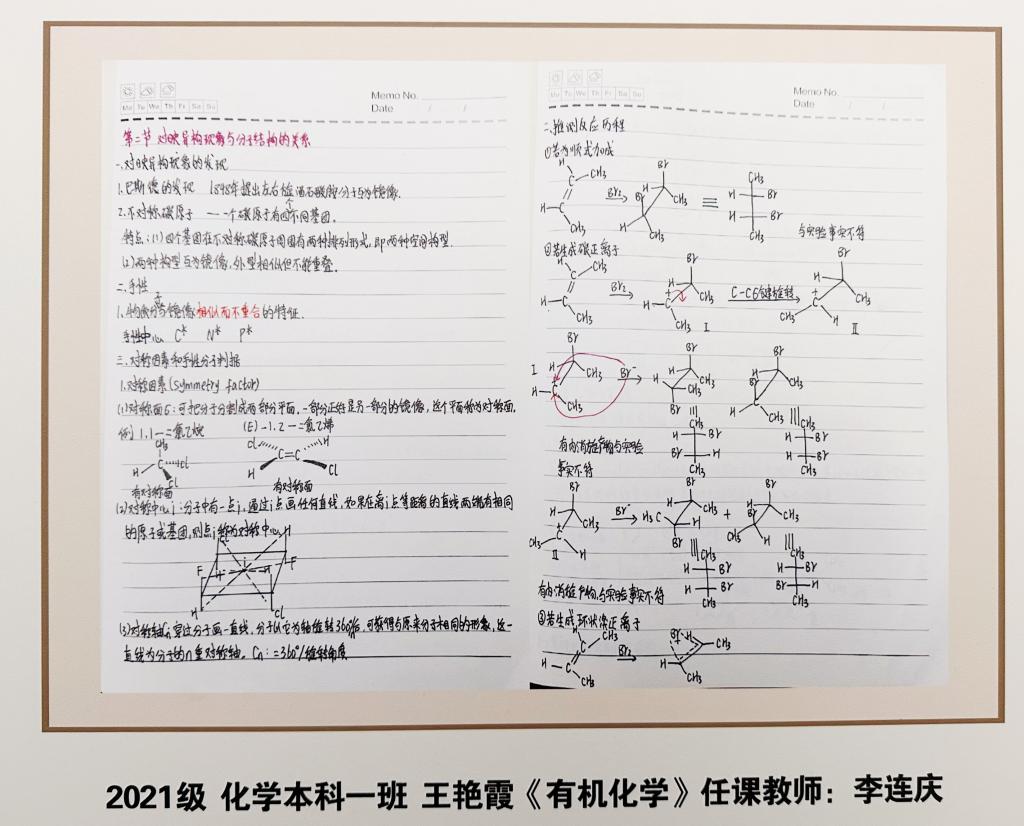 Memo No.
Date / /
Mo Tu We Th Fr Sa Su
第二节 对映异构现象与分子结构的关系
一、对映异构现象的发现
1.巴斯德的发现 1848年提出左右 酒石酸 分子互为镜像.
2.不对称碳原子 一 一个碳原子有四个不同基团。
特点:(1)四个基团在不对称碳原子周围有两种排列形式,即两种空间构型.
(2)两种构型互为镜像,外型相似但不能重叠。
二、手性
1、物质分子与镜像相似而不重合的特征.
手性中心 C* N* P*
三、对称因素和手性分子判据
1.对称因素(symmetry factor)
(1)对称面σ:可把分子分割成两部分平面,一部分正好是另一部分的镜像,这个平面称为对称面.
例) 1.1-二氯乙烷 (E)-1.2-二氯乙烯
CH3
H C Cl
Cl
Cl H
C=C
H Cl
有对称面 有对称面
(2)对称中心i:分子中有一点i,通过i点画任何直线,如果在离i点等距离的直线两端有相同
的原子或基团,则点i称为对称中心
H
F H i F
H Cl
(3)对称轴Cn 穿过分子画一直线,分子以它为轴旋转360°/n,可获得与原来分子相同的形象,这一
直线为分子的n重对称轴。Cn:=360°/旋转角度
Memo No.
Date / /
Mo Tu We Th Fr Sa Su
二、推测反应历程
①若为顺式加成
H CH3 Br2 Br CH3
H CH3 Br H CH3 ≡ H Br
H Br
CH3
与实验事实不符
②若生成碳正离子
H CH3 Br2 Br H CH3 C-Cσ键旋转 Br H CH3
H CH3 H CH3 I CH3 H II
I Br H CH3 Br- Br H CH3 Br H CH3
H CH3 H Br CH3 Br H CH3
CH3 CH3
H Br H Br
Br H H Br
CH3 CH3
有内消旋产物与实验
事实不符
Br H CH3 Br- Br H CH3 + Br H CH3
CH3 H II H3C H Br Br CH3 H
CH3 CH3
H Br H Br
H Br Br H
CH3 CH3
有内消旋产物,与实验事实不符
③若生成环状溴正离子
H CH3 Br2 Br+ H CH3
H CH3 H CH3
2021级 化学本科一班 王艳霞《有机化学》任课教师：李连庆